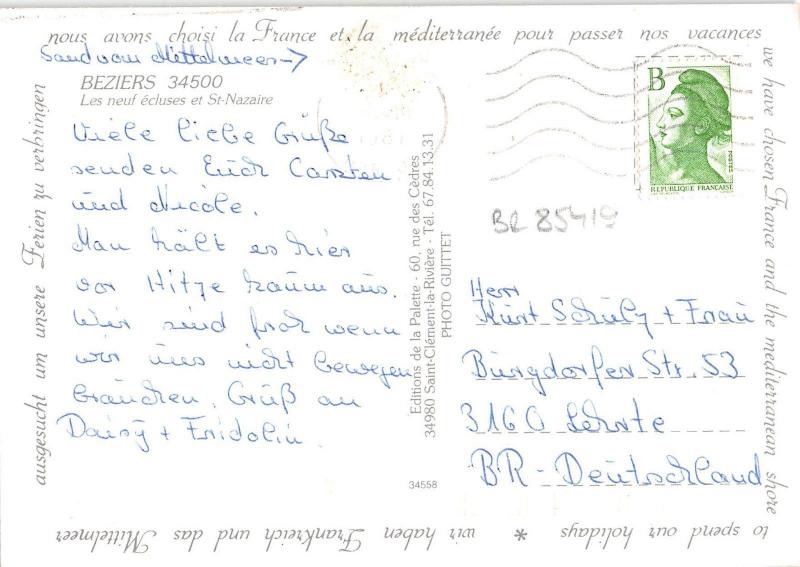 nous avons choisi la France et la méditerranée pour passer nos vacances
we have chosen France and the mediterranean shore
to spend our holidays * wir haben Frankreich und das Mittelmeer
ausgesucht um unsere Ferien zu verbringen
Sand vom Mittelmeer →
BEZIERS 34500
Les neuf écluses et St-Nazaire
Viele liebe Grüße
senden Euch Carsten
und Nicole.
Man hält es hier
vor Hitze kaum aus.
Wir sind froh wenn
wir uns nicht bewegen
brauchen. Gruß an
Daisy + Fridolin
Editions de la Palette - 60, rue des Cèdres
34980 Saint-Clément-la-Rivière - Tél. 67.84.13.31
PHOTO GUITTET
34558
B
POSTES
REPUBLIQUE FRANÇAISE
BR 85419
Herr
Kurt Schulz + Frau
Burgdorfer Str. 53
3160 Lehrte
BR - Deutschland